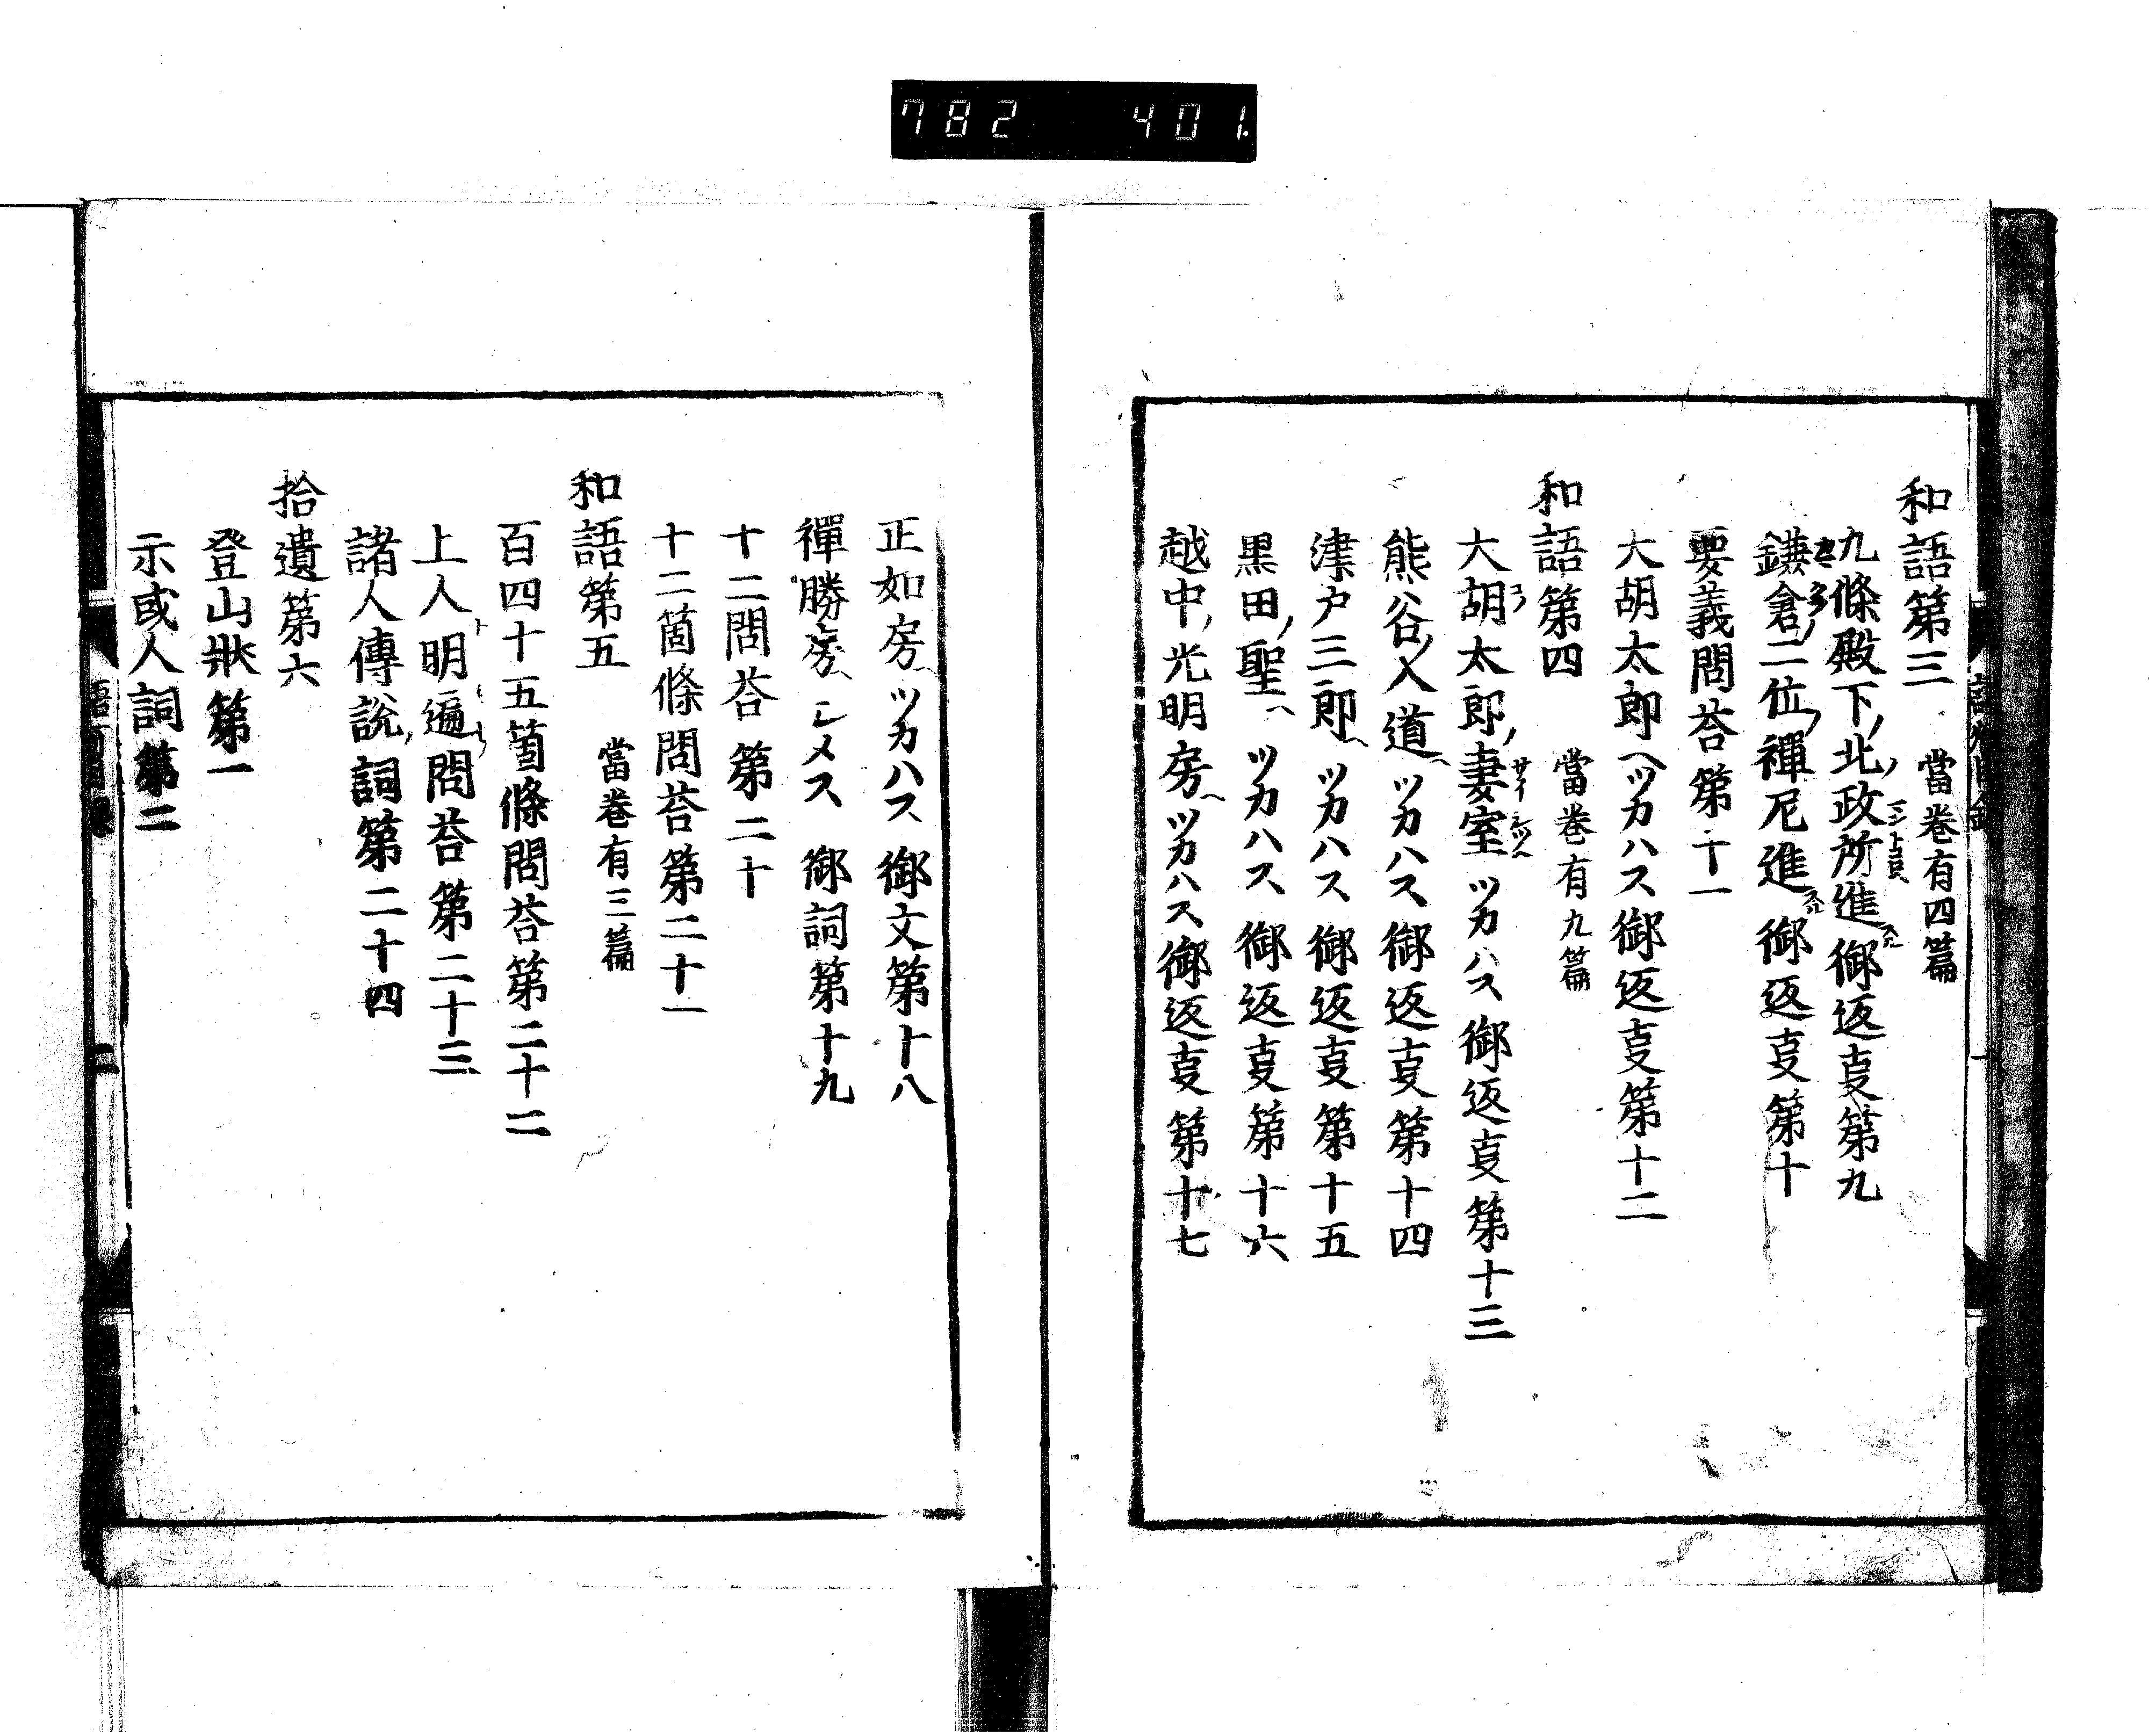 782 401.
和語第三 當卷有四篇
九條殿下ノ北ノ政所進御返㕝第九
鎌倉ノ二位ノ禪尼進御返㕝第十
要義問荅第十一
大胡太郎ヘツカハス御返㕝第十二
和語第四 當卷有九篇
大胡太郎ノ妻室ヘツカハス御返㕝第十三
熊谷ノ入道ヘツカハス御返㕝第十四
津戸三郎ヘツカハス御返㕝第十五
黒田ノ聖ヘツカハス御返㕝第十六
越中ノ光明房ヘツカハス御返㕝第十七
正如房ヘツカハス御文第十八
禪勝房ニシメス御詞第十九
十二問荅第二十
十二箇條問荅第二十一
和語第五 當卷有三篇
百四十五箇條問荅第二十二
上人ト明遍ト問荅第二十三
諸人傳說ノ詞第二十四
拾遺第六
登山狀第一
示或人詞第二
二